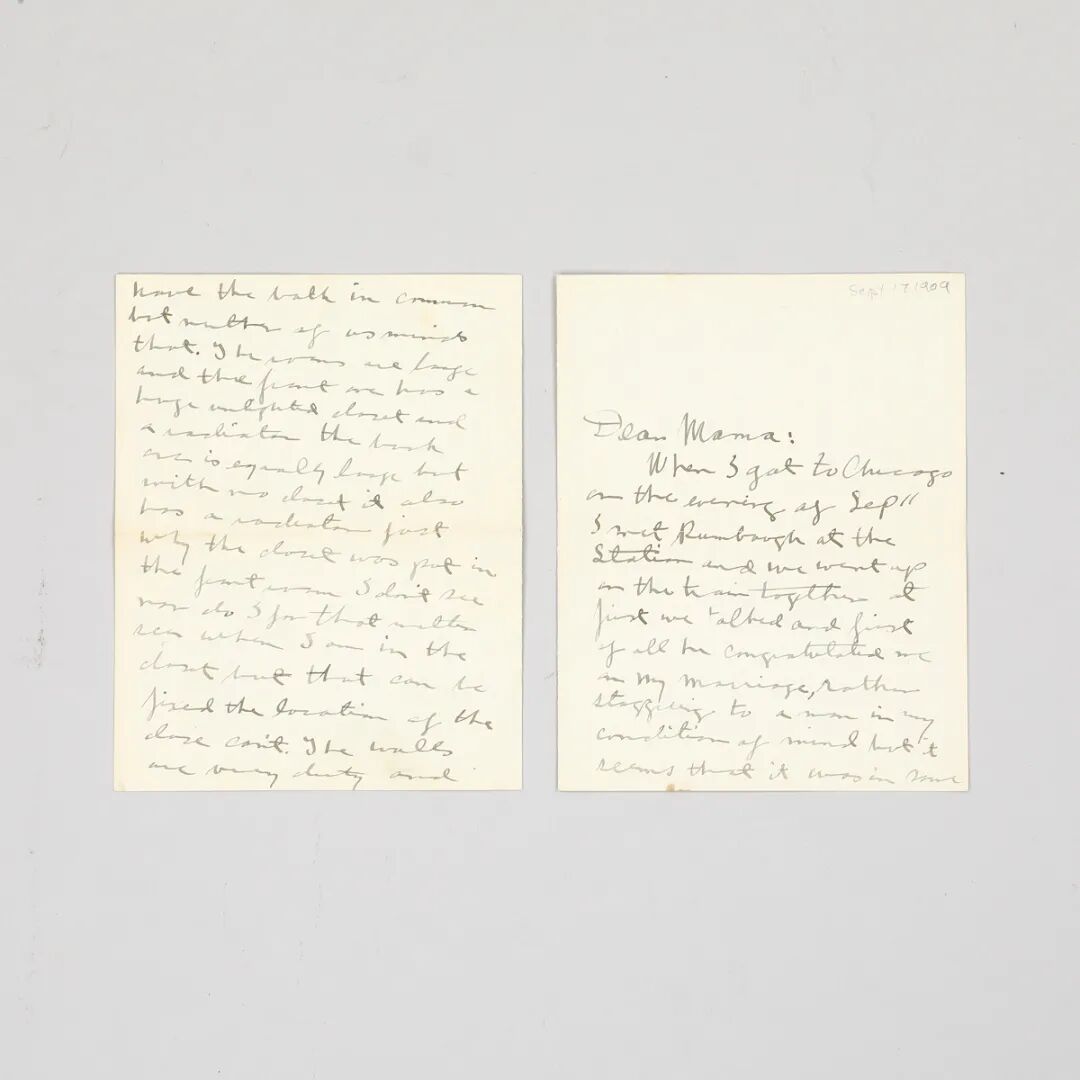 Sept 17 1909
Dear Mama:
When I got to Chicago
on the evening of Sep 11
I met Rumbaugh at the
Station and we went up
on the train together at
first we talked and first
of all he congratulated me
on my marriage, rather
staggering to a man in my
condition of mind but it
seems that it was in some
have the bath in common
but neither of us minds
that. The rooms are large
and the front one has a
huge unlighted closet and
a radiator the back
one is equally large but
with no closet it also
has a radiator just
why the closet was put in
the front room I don't see
nor do I for that matter
see when I am in the
closet but that can be
fixed the location of the
close can't. The walls
are very dirty and